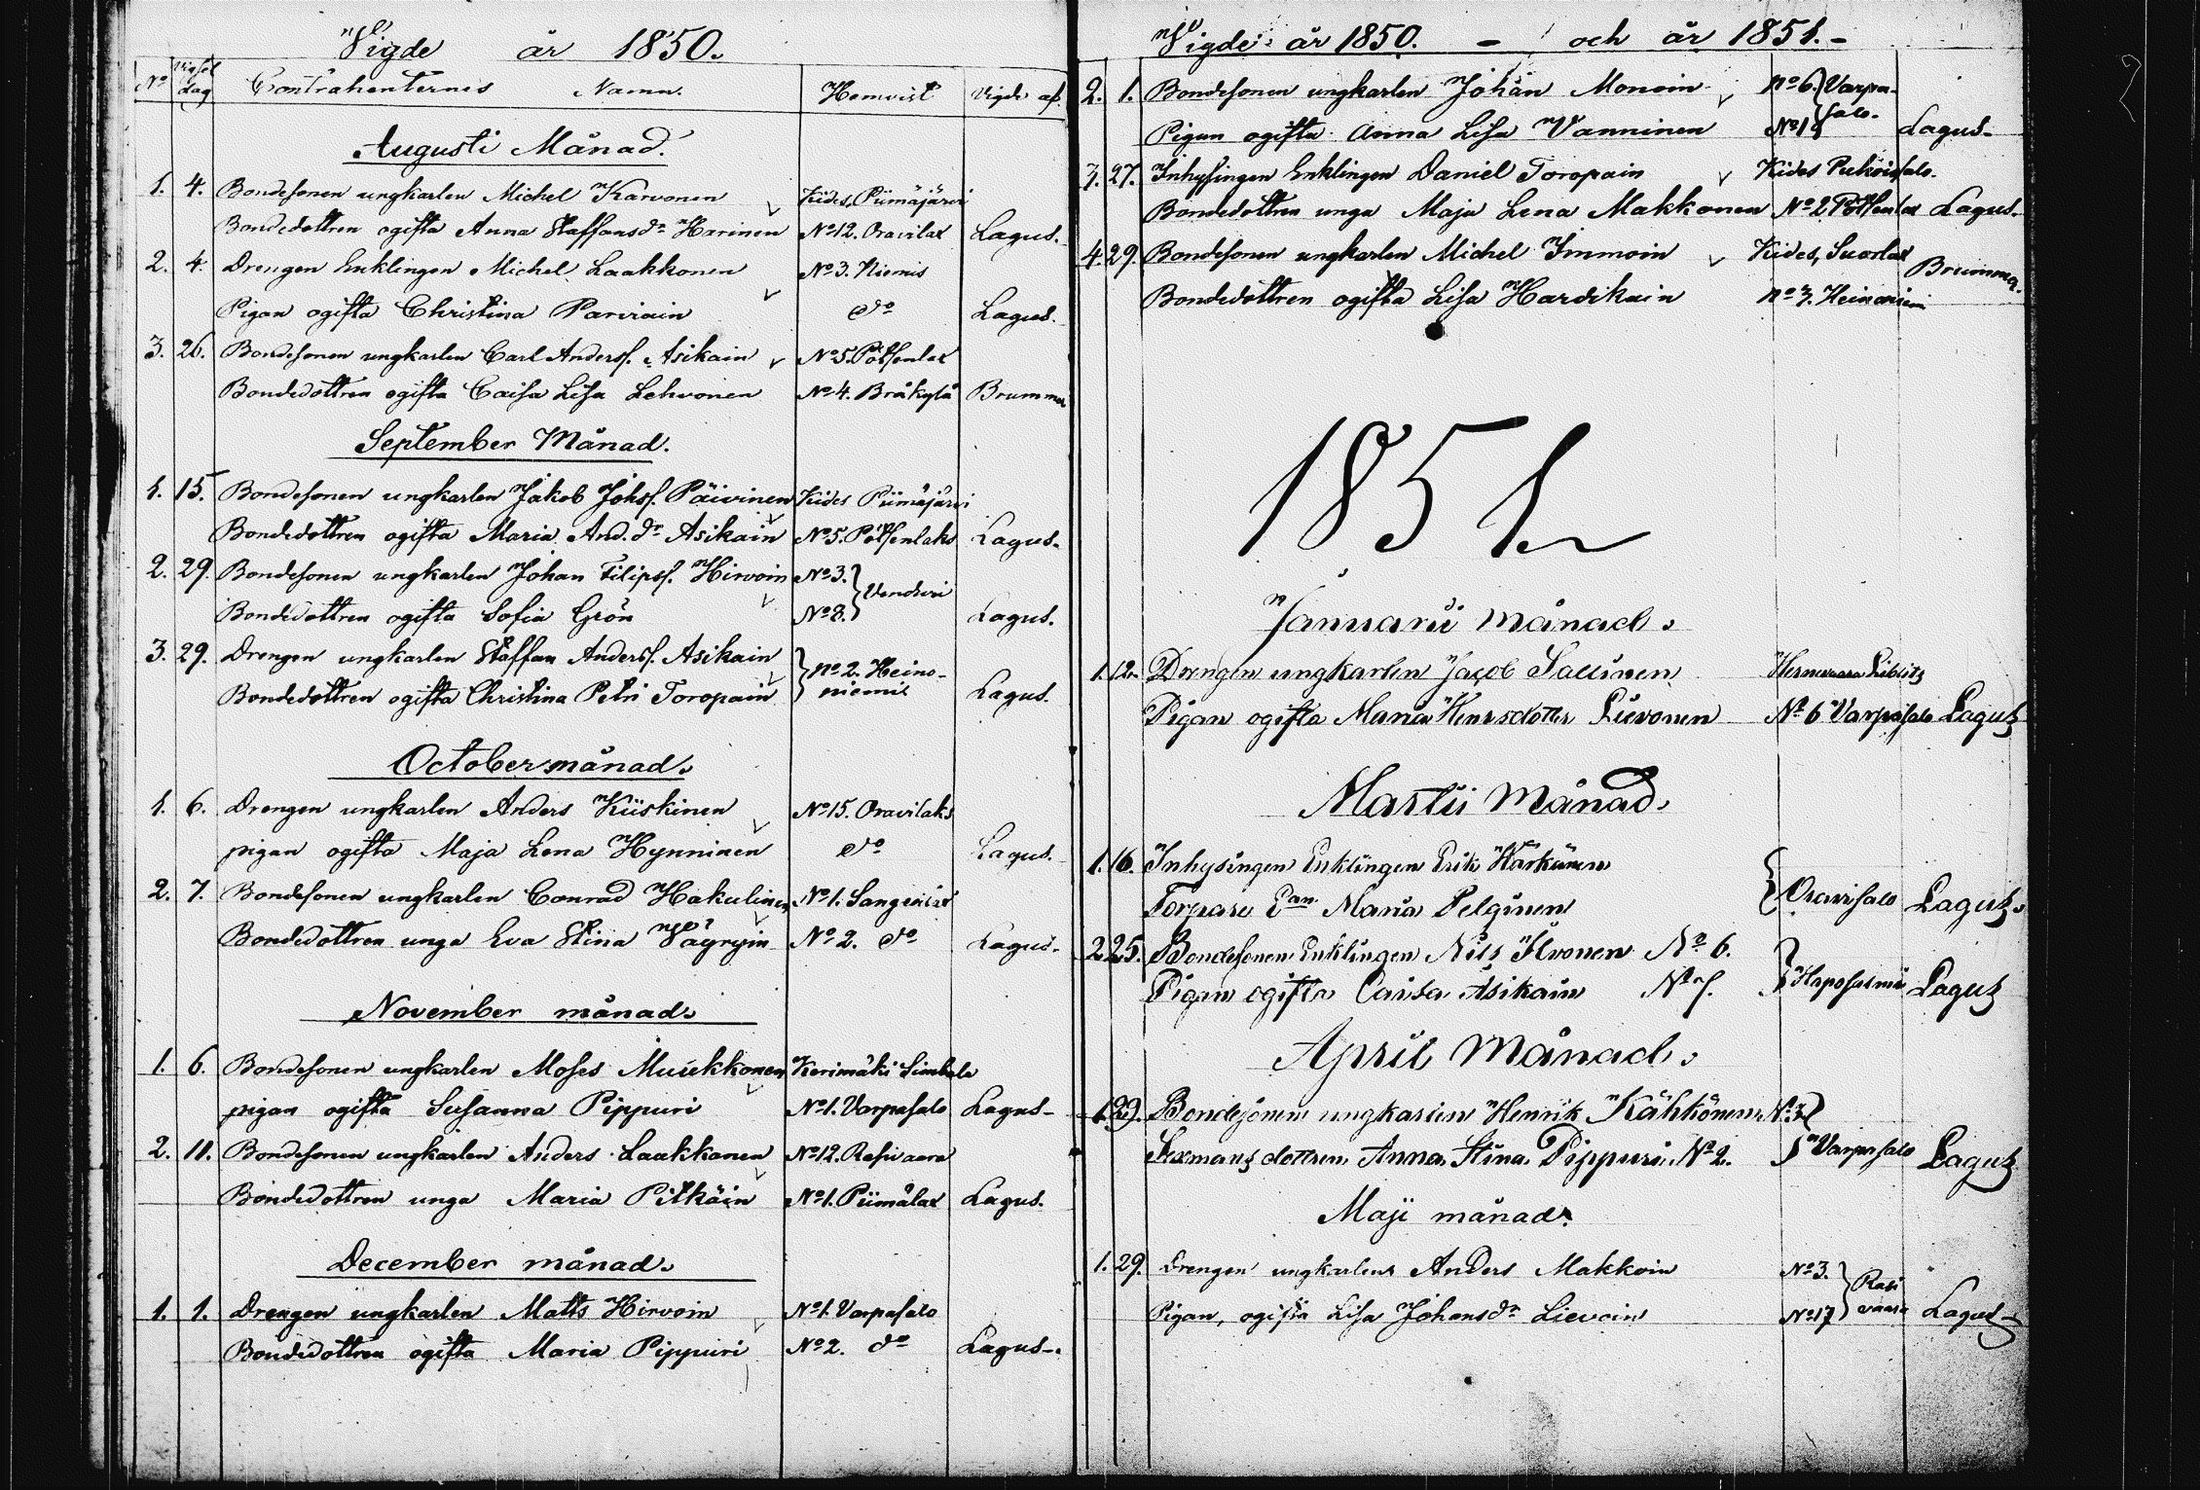 Vigde år 1850.
No Vigsel dag Contrahenternes Namn. Hemvist Vigde af.
Augusti Månad.
1. 4. Bondesonen ungkarlen Michel Karvonen Kides, Piimäjärvi
Bondedottren ogifta Anna Staffansdr Harinen No 12. Oravilax Lagus.
2. 4. Drengen Enklingen Michel Laakkonen No 3. Niemis
Pigan ogifta Christina Parviain do Lagus.
3. 26. Bondesonen ungkarlen Carl Anderss. Asikain No 5. Potsenlax
Bondedottren ogifta Caisa Lisa Lehvonen No 4. Bråkylä Brummer
September Månad.
1. 15. Bondesonen ungkarlen Jakob Johss. Päivinen Kides Piimäjärvi
Bondedottren ogifta Maria And.dr Asikain No 5. Potsenlaks Lagus.
2. 29. Bondesonen ungkarlen Johan Filipss. Hirvoin No 3.
Bondedottren ogifta Sofia Grön No 8. Lagus.
3. 29. Drengen ungkarlen Staffan Anderss. Asikain No 2. Heino-
Bondedottren ogifta Christina Petri Toropain niemis Lagus.
October månad.
1. 6. Drengen ungkarlen Anders Kiiskinen No 15. Oravilaks
pigan ogifta Maja Lena Hynninen do Lagus.
2. 7. Bondesonen ungkarlen Conrad Hakulinen No 1.
Bondedottren unga Eva Stina Väyryin No 2. do Lagus.
November månad.
1. 6. Bondesonen ungkarlen Moses Muukkonen Kerimäki
pigan ogifta Susanna Pippuri No 1. Varpasalo Lagus
2. 11. Bondesonen ungkarlen Anders Laakkonen No 12. Rasivaara
Bondedottren unga Maria Pitkäin No 1. Piimälax Lagus.
December månad.
1. 1. Drengen ungkarlen Matts Hirvoin No 1. Varpasalo
Bondedottren ogifta Maria Pippuri No 2. do Lagus.
Vigde år 1850. - och år 1851. -
2. 1. Bondesonen ungkarlen Johan Monoin No 6. Varpa-
Pigan ogifta Anna Lisa Vanninen salo. Lagus
3. 27. Inhysingen Enklingen Daniel Toropain Kides
Bondedottren unga Maja Lena Makkonen No 2 Potsenlax Lagus.
4. 29. Bondesonen ungkarlen Michel Immoin Kides, Suorlax
Bondedottren ogifta Lisa Hardikain No 7. Heinoniemi Brummer.
1851
Januarii månad.
1. 12. Drengen ungkarlen Jacob Sallinen Libelitz
Pigan ogifta Maria Henrsdotter Lievonen No 6 Varpasalo Lagus
Martii Månad.
1. 16. Inhysingen Enklingen Erik
Maria Pelginen Oravisalo Lagus.
2. 25. Bondesonen Enklingen Nils Ilvonen No 6.
Pigan ogifta Caisa Asikain Haposalmi Lagus
April Månad.
1. 29. Bondesonen ungkarlen Henrik Kähkönen
Sexmans dottren Anna Stina Pippuri No 2. Varpasalo Lagus
Maji månad.
1. 29. Drengen ungkarlen Anders Makkoin No 3. Rasi
Pigan, ogifta Lisa Johansdr Lievoin No 17 vaara Lagus